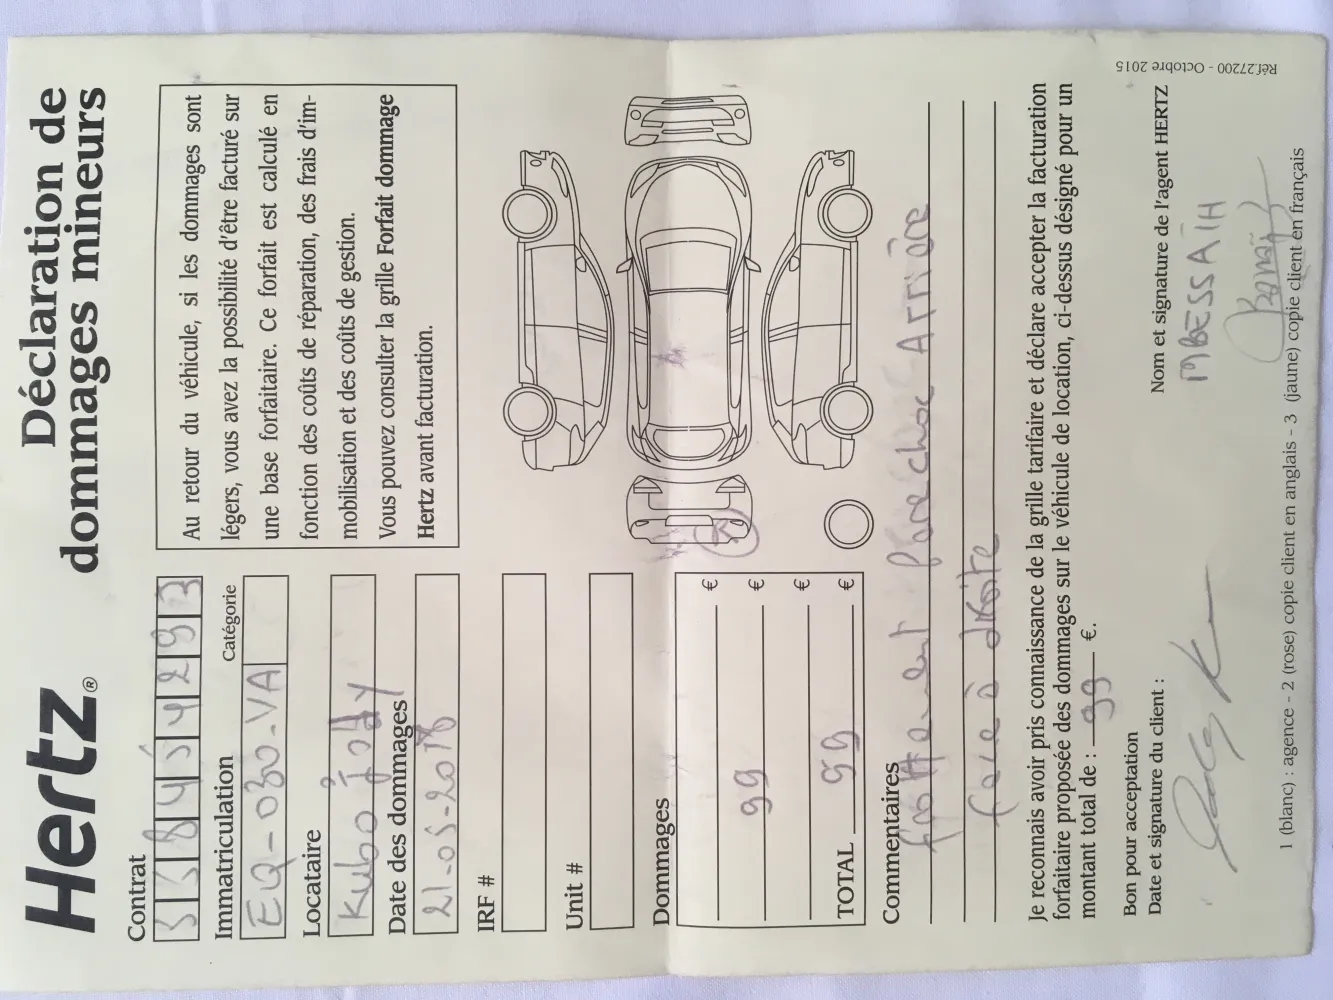 Hertz®
Déclaration de
dommages mineurs
Contrat
Immatriculation
Catégorie
EQ-030-VA
Locataire
Kubo jody
Date des dommages
21-05-2018
IRF #
Unit #
Au retour du véhicule, si les dommages sont
légers, vous avez la possibilité d'être facturé sur
une base forfaitaire. Ce forfait est calculé en
fonction des coûts de réparation, des frais d'im-
mobilisation et des coûts de gestion.
Vous pouvez consulter la grille Forfait dommage
Hertz avant facturation.
Dommages
€
99 €
€
TOTAL 99 €
Commentaires
frottement parechoc Arrière
face à droite
Je reconnais avoir pris connaissance de la grille tarifaire et déclare accepter la facturation
forfaitaire proposée des dommages sur le véhicule de location, ci-dessus désigné pour un
montant total de : 99 €.
Bon pour acceptation
Date et signature du client :
Nom et signature de l'agent HERTZ
MBESSAÏH
1 (blanc) : agence - 2 (rose) copie client en anglais - 3 (jaune) copie client en français
Réf.27200 - Octobre 2015